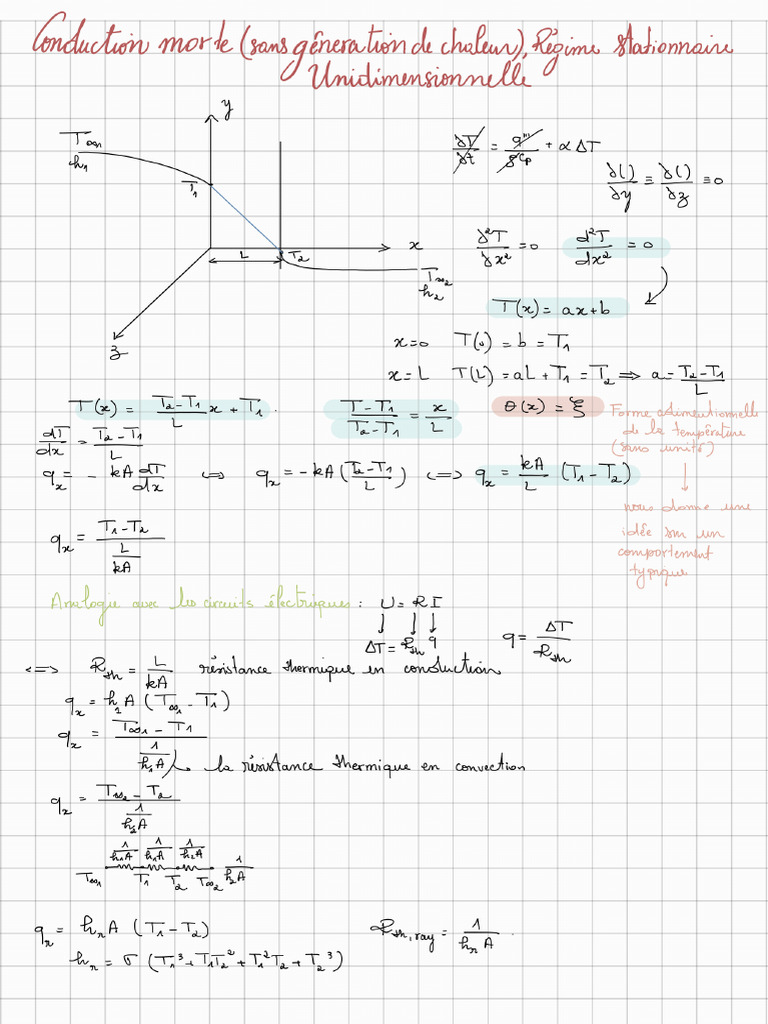 Conduction morte (sans génération de chaleur), Régime stationnaire
Unidimensionnelle
y
T∞1
h1
T1
L
T2
x
T∞2
h2
z
∂T/∂t = q'''/ρCp + α ΔT
∂()/∂y ≡ ∂()/∂z ≡ 0
∂²T/∂x² = 0 d²T/dx² = 0
T(x) = ax + b
x = 0 T(0) = b = T1
x = L T(L) = aL + T1 = T2 ⟹ a = (T2 - T1)/L
T(x) = (T2 - T1)/L x + T1 . (T - T1)/(T2 - T1) = x/L θ(x) = ξ
Forme adimentionnelle
de la température
(sans unité)
↓
nous donne une
idée sur un
comportement
typique
dT/dx = (T2 - T1)/L
qx = - kA dT/dx ⟺ qx = - kA ((T2 - T1)/L) ⟺ qx = kA/L (T1 - T2)
qx = (T1 - T2)/(L/kA)
Analogie avec les circuits électriques : U = R I
↓ ↓ ↓
ΔT = Rth q
q = ΔT/Rth
⟺ Rth = L/kA résistance thermique en conduction
qx = h1 A (T∞1 - T1)
qx = (T∞1 - T1)/(1/h1A)
↳ la résistance thermique en convection
qx = (T∞2 - T2)/(1/h2A)
1/h1A 1/h1A 1/h2A
T∞1 T1 T2 T∞2 1/h2A
qx = hr A (T1 - T2) Rth, ray = 1/(hr A) .
hr = σ (T1³ + T1T2² + T1²T2 + T2³)